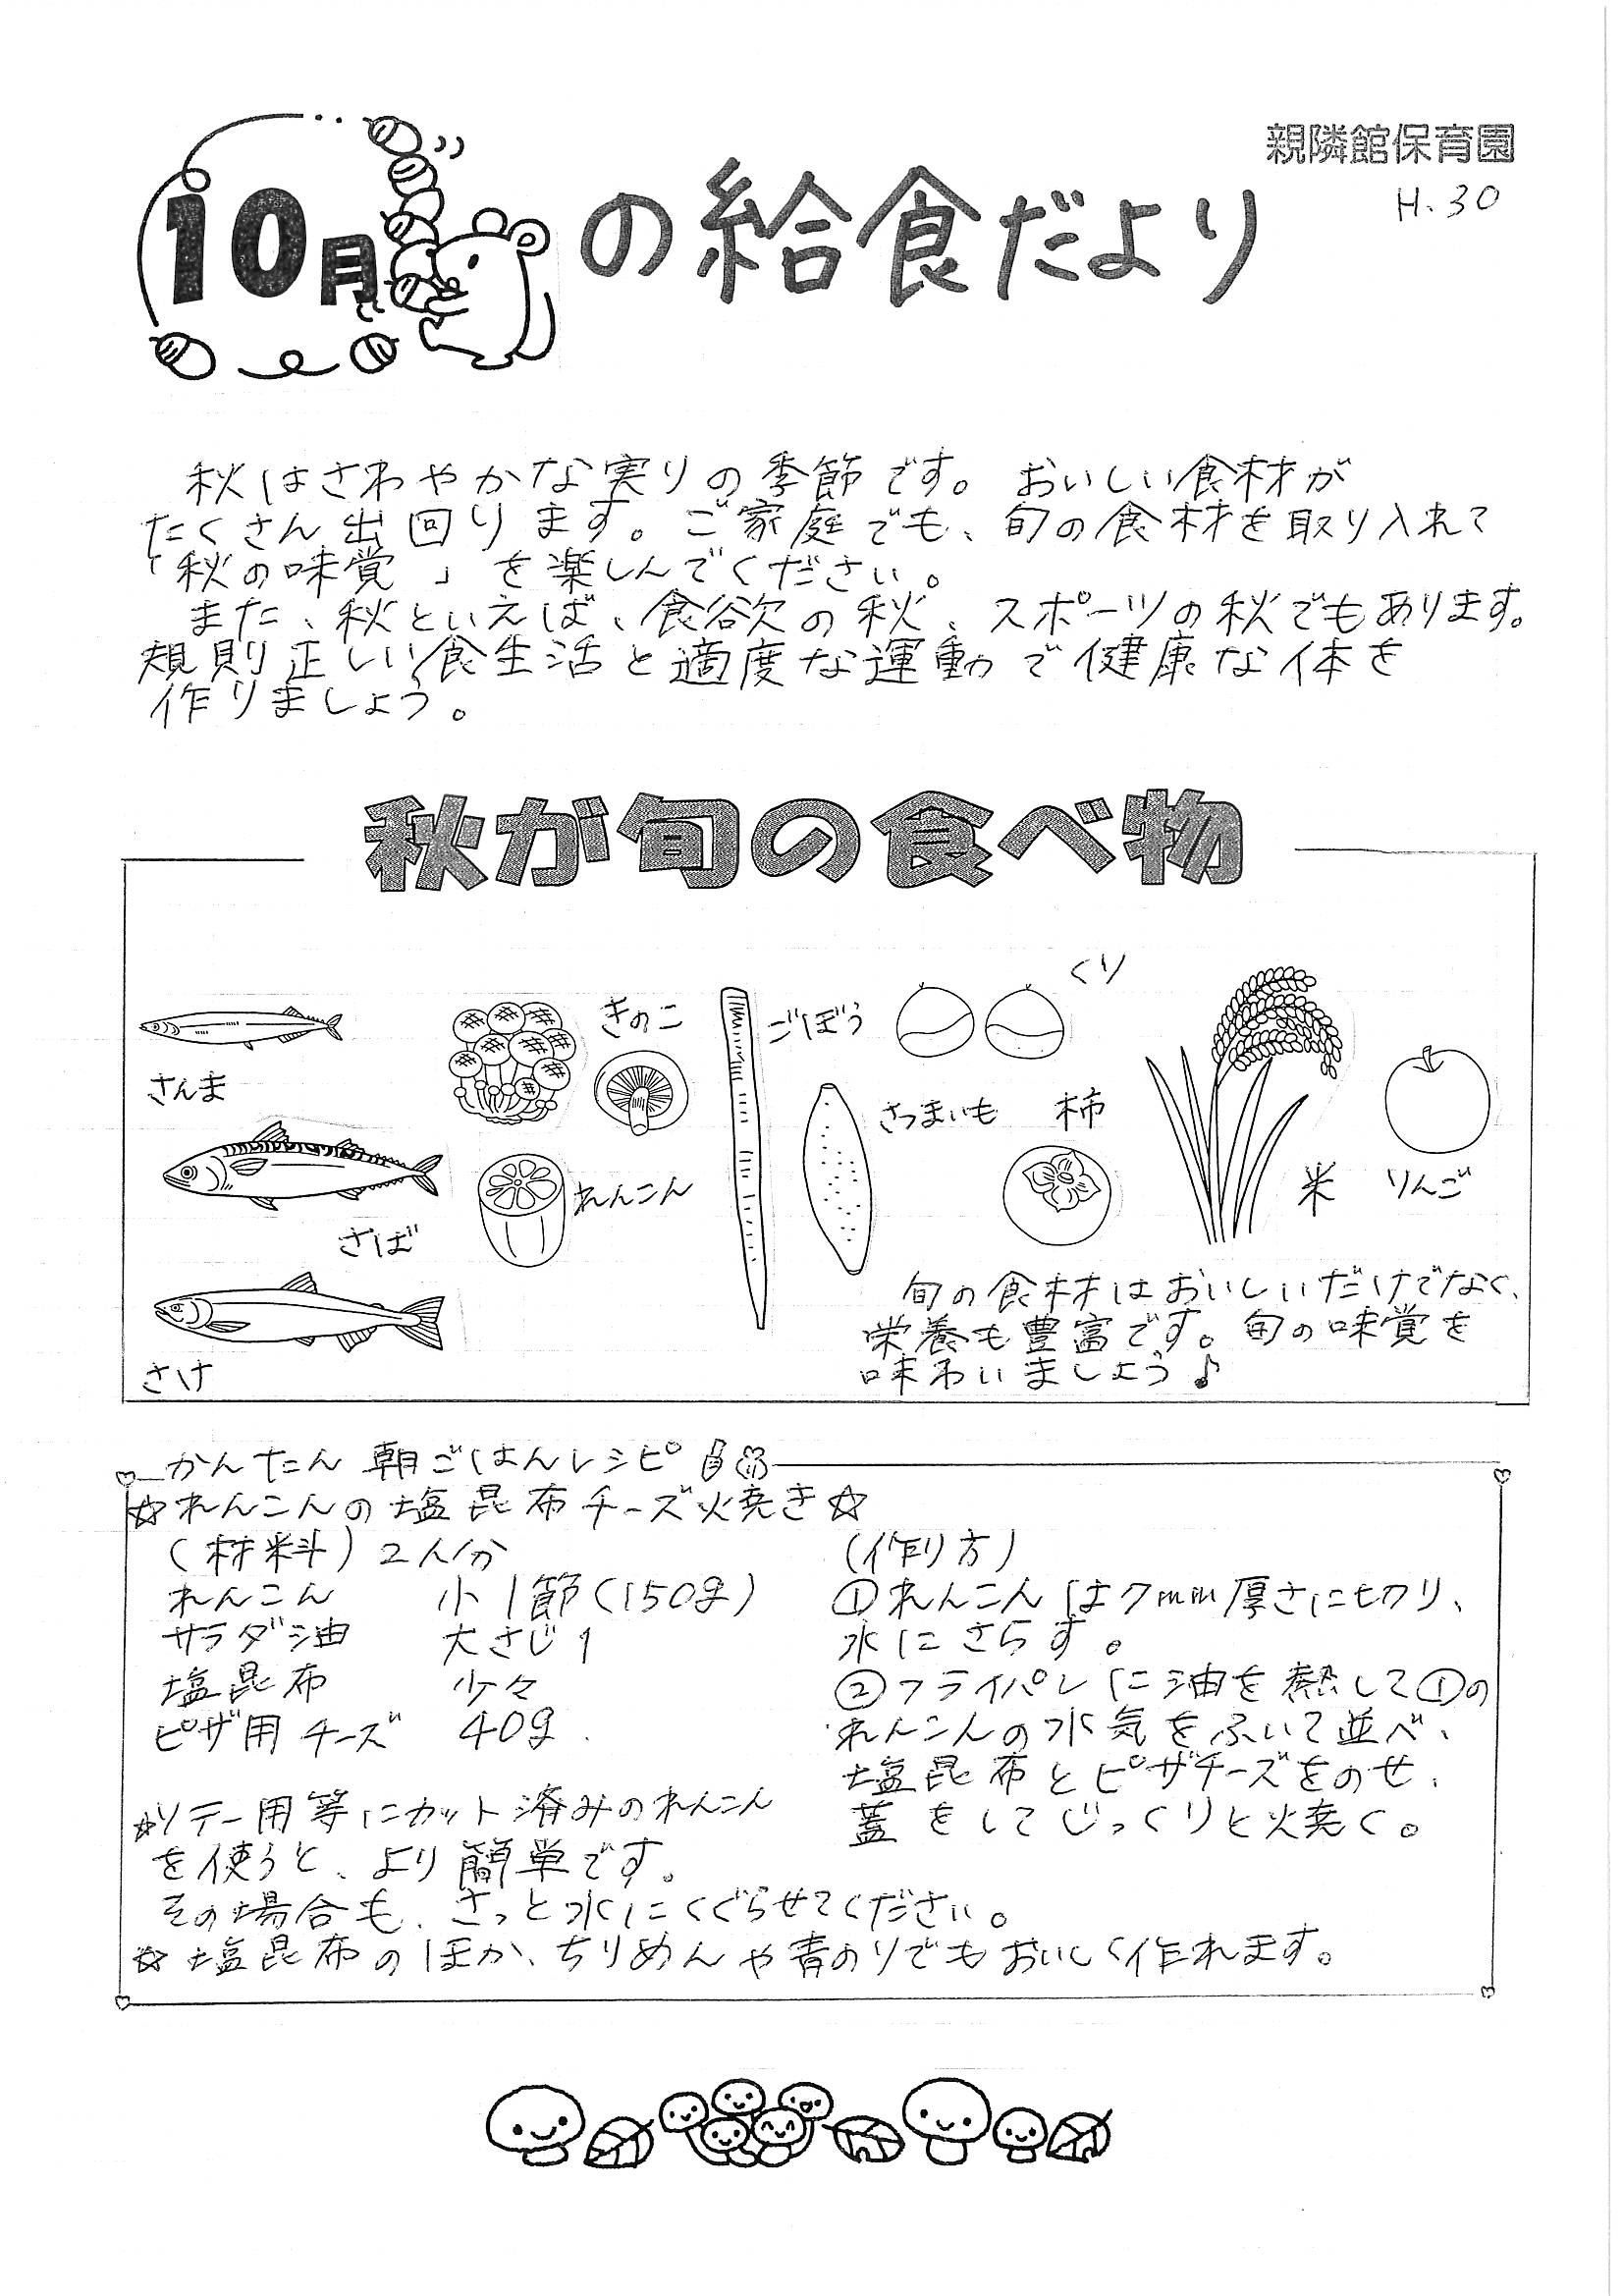 親隣館保育園
H.30
10月の給食だより
秋はさわやかな実りの季節です。おいしい食材が
たくさん出回ります。ご家庭でも、旬の食材を取り入れて
「秋の味覚」を楽しんでください。
また、秋といえば、食欲の秋、スポーツの秋でもあります。
規則正しい食生活と適度な運動で健康な体を
作りましょう。
秋が旬の食べ物
さんま
さば
さけ
きのこ
れんこん
ごぼう
くり
さつまいも
柿
米
りんご
旬の食材はおいしいだけでなく、
栄養も豊富です。旬の味覚を
味わいましょう♪
かんたん 朝ごはんレシピ
☆れんこんの塩昆布チーズ焼き☆
(材料)2人分
れんこん 小1節(150g)
サラダ油 大さじ1
塩昆布 少々
ピザ用チーズ 40g
(作り方)
①れんこんは7mm厚さに切り、
水にさらす。
②フライパンに油を熱して①の
れんこんの水気をふいて並べ、
塩昆布とピザチーズをのせ、
蓋をしてじっくりと焼く。
☆ソテー用等にカット済みのれんこん
を使うと、より簡単です。
その場合も、さっと水にくぐらせてください。
☆塩昆布のほか、ちりめんや青のりでもおいしく作れます。